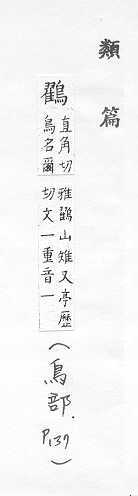 類篇
鸐
直角切
鳥名爾
雅鸐山雉又亭歷
切文一重音一
(鳥部. P137)